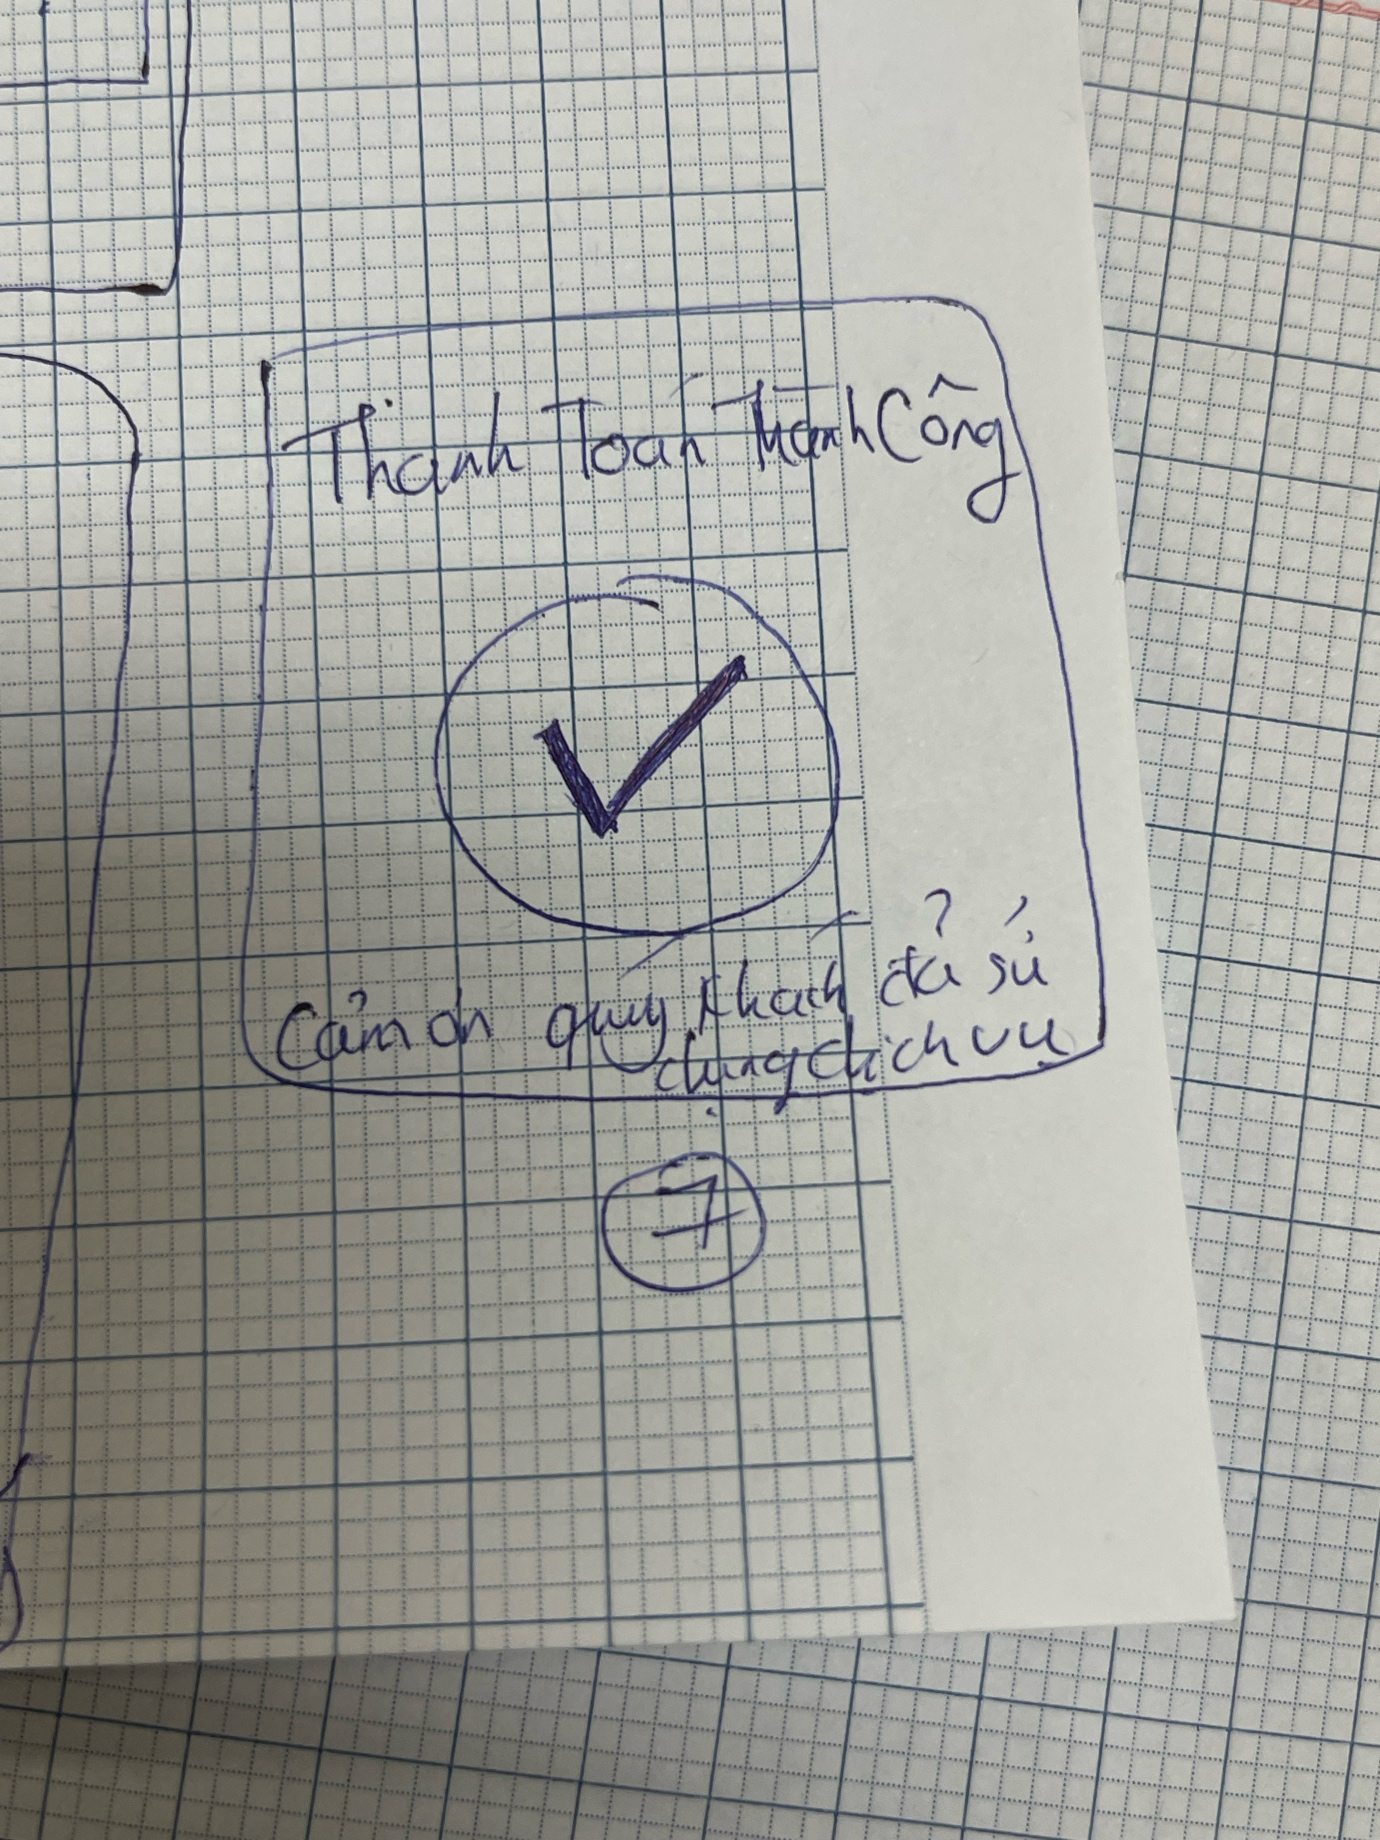 Thanh Toán Thành Công
Cảm ơn quý khách đả sú
dụng dịch vụ
7